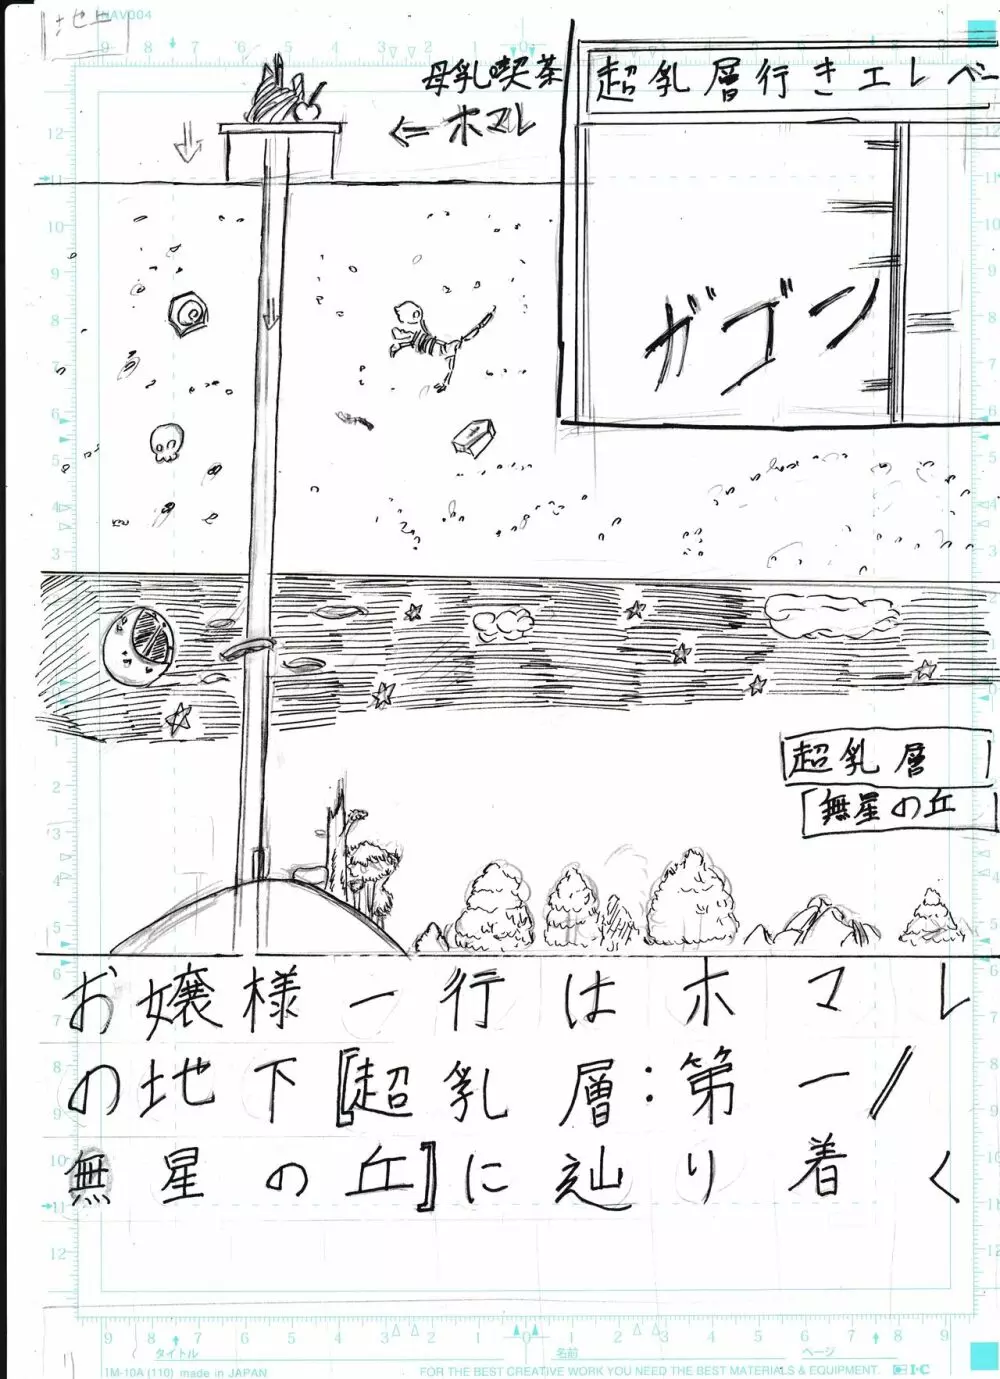 地上
NAV004
母乳喫茶
⇐ ホマレ
超乳層行きエレベー
ガゴン
超乳層
無星の丘
お嬢様一行はホマレ
の地下『超乳層:第一/
無星の丘』に辿り着く
タイトル
名前
ページ
IM-10A (110) made in JAPAN
FOR THE BEST CREATIVE WORK YOU NEED THE BEST MATERIALS & EQUIPMENT.
I·C